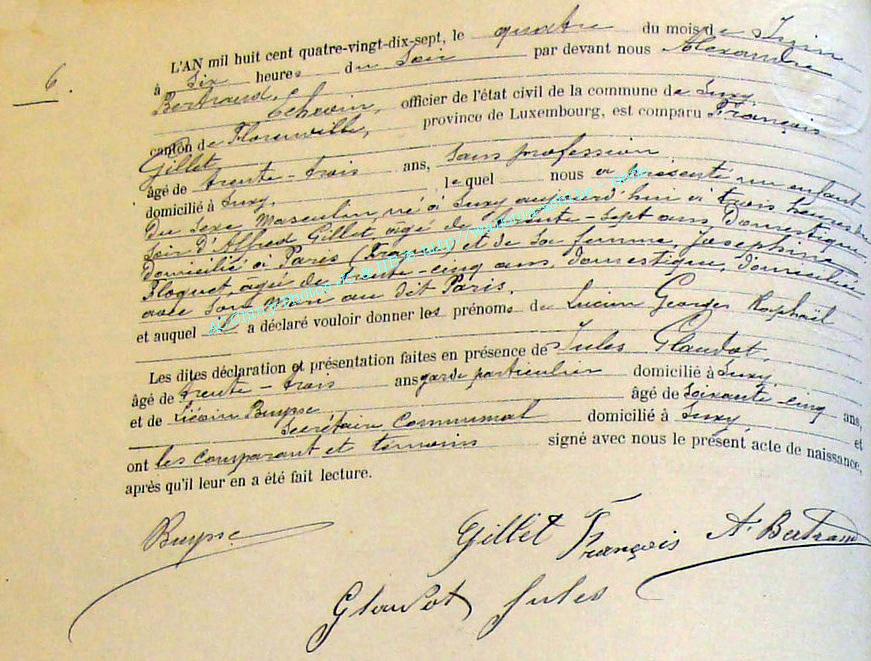 6.
L'AN mil huit cent quatre-vingt-dix-sept, le quatre du mois de Juin
à Six heures du Soir par devant nous Alexandre
Bertrand, Echevin, officier de l'état civil de la commune de Suxy,
canton de Florenville, province de Luxembourg, est comparu François
Gillet
âgé de trente-trois ans, Sans profession
domicilié à Suxy, lequel nous a présenté un enfant
Du Sexe Masculin né à Suxy aujourd'hui à trois heures du
Soir D'Alfred Gillet âgé de trente-sept ans Domestique,
Domicilié à Paris (France) et de Sa femme, Joséphine
Floquet agé de trente-cinq ans, domestique, domiciliée
avec Son Mari au dit Paris.
et auquel il a déclaré vouloir donner les prénoms de Lucien Georges Raphaël
Les dites déclaration et présentation faites en présence de Jules Glaudot,
âgé de trente-trois ans garde particulier domicilié à Suxy
et de Liévin Buysse âgé de Soixante-cinq ans,
Secrétaire Communal domicilié à Suxy, et
ont les comparant et temoins signé avec nous le présent acte de naissance,
après qu'il leur en a été fait lecture.
Buysse Gillet François A. Bertrand
Glaudot Jules